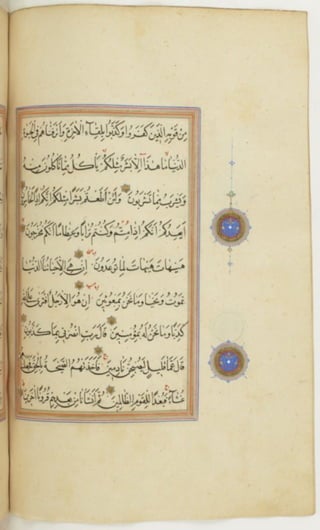 مِن قَوْمِهِ الَّذِينَ كَفَرُوا وَكَذَّبُوا بِلِقَاءِ الْآخِرَةِ وَأَتْرَفْنَاهُمْ فِي الْحَيٰوةِ
الدُّنْيَا مَا هَذَا إِلَّا بَشَرٌ مِثْلُكُمْ يَأْكُلُ مِمَّا تَأْكُلُونَ مِنْهُ
وَيَشْرَبُ مِمَّا تَشْرَبُونَ وَلَئِنْ أَطَعْتُمْ بَشَرًا مِثْلَكُمْ إِنَّكُمْ إِذًا لَخَاسِرُونَ
أَيَعِدُكُمْ أَنَّكُمْ إِذَا مِتُّمْ وَكُنْتُمْ تُرَابًا وَعِظَامًا أَنَّكُمْ مُخْرَجُونَ
هَيْهَاتَ هَيْهَاتَ لِمَا تُوعَدُونَ إِنْ هِيَ إِلَّا حَيَاتُنَا الدُّنْيَا
نَمُوتُ وَنَحْيَا وَمَا نَحْنُ بِمَبْعُوثِينَ إِنْ هُوَ إِلَّا رَجُلٌ افْتَرَى عَلَى اللَّهِ
كَذِبًا وَمَا نَحْنُ لَهُ بِمُؤْمِنِينَ قَالَ رَبِّ انْصُرْنِي بِمَا كَذَّبُونِ
قَالَ عَمَّا قَلِيلٍ لَيُصْبِحُنَّ نَادِمِينَ فَأَخَذَتْهُمُ الصَّيْحَةُ بِالْحَقِّ فَجَعَلْنَاهُمْ
غُثَاءً فَبُعْدًا لِلْقَوْمِ الظَّالِمِينَ ثُمَّ أَنْشَأْنَا مِنْ بَعْدِهِمْ قُرُونًا آخَرِينَ